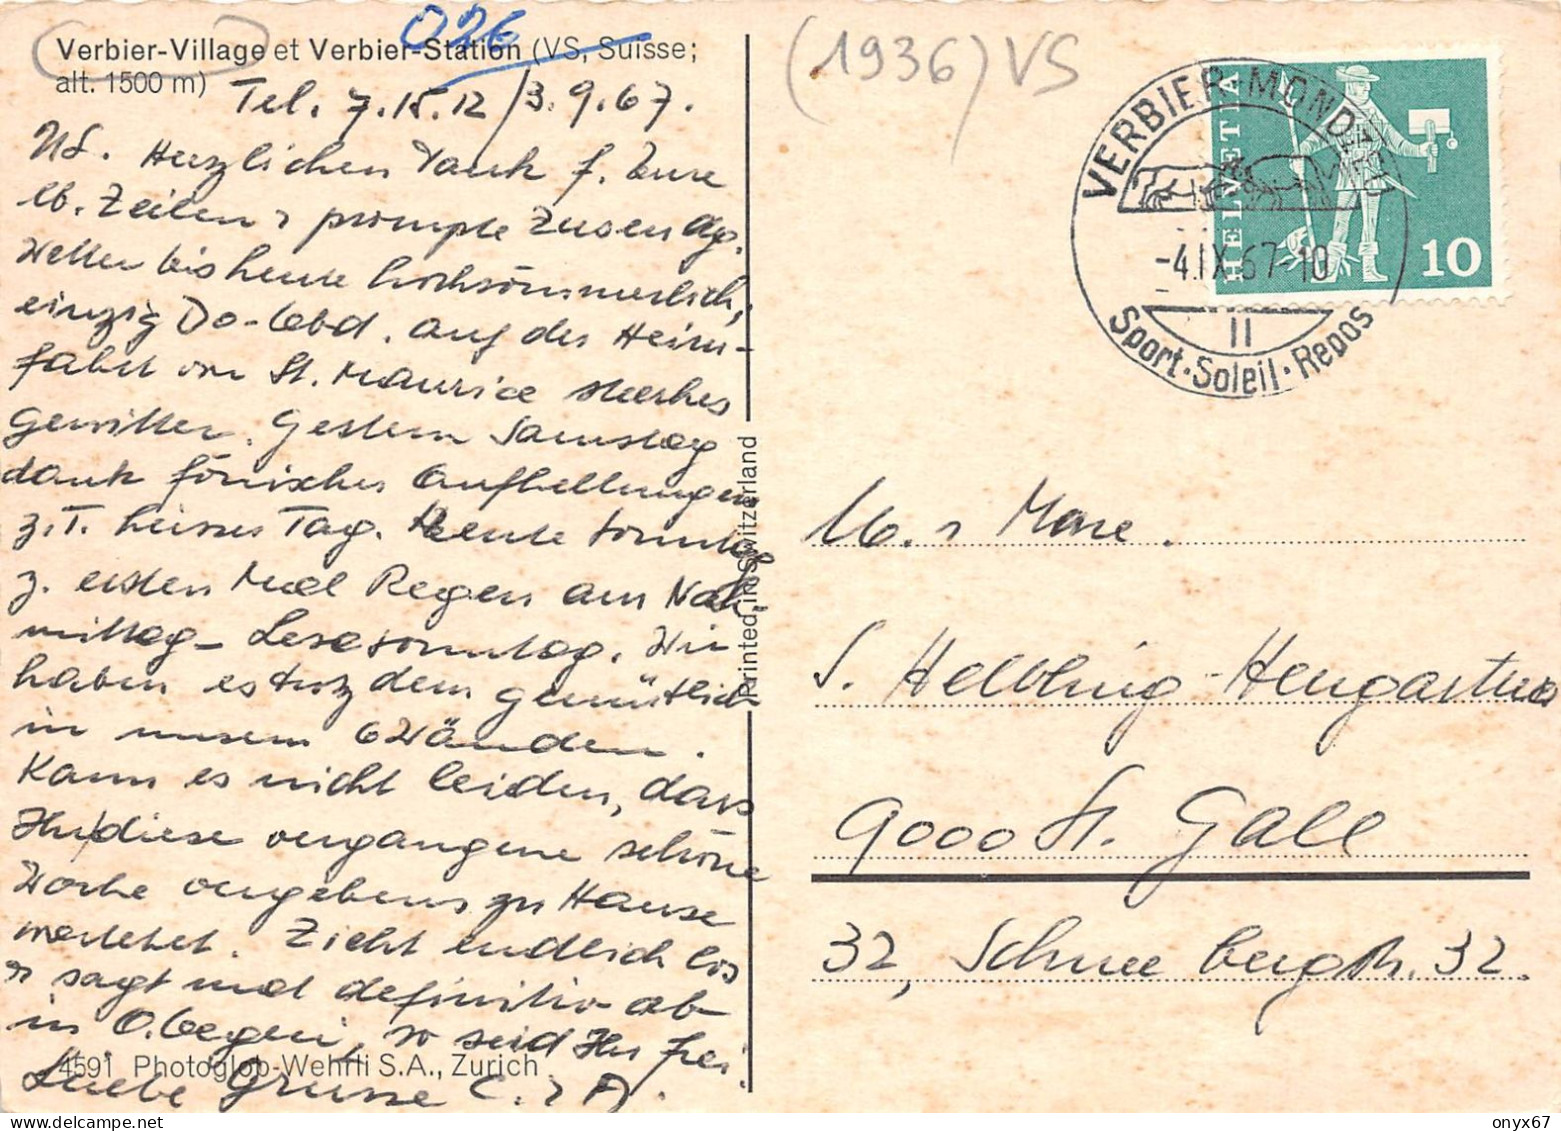 026
Verbier-Village et Verbier-Station (VS, Suisse;
alt. 1500 m)
Tel. 7.15.12 / 3.9.67.
Herzlichen Dank f. Eure
lb. Zeilen & prompte Zusendg.
Wetter bis heute hochsommerlich,
einzig Do-Abd. auf der Heim-
fahrt von St. Maurice starkes
Gewitter. Gestern Samstag
dank föhnischer Aufhellungen
z.T. heisser Tag. Heute Sonntag
z. ersten Mal Regen am Nach-
mittag - Lesesonntag. Wir
haben es trotzdem gemütlich
in unsern 6 Wänden.
Kann es nicht leiden, dass
Ihr diese vergangene schöne
Woche vergebens zu Hause
wartetet. Zieht endlich los
& sagt mal definitiv ab
in O.begeri, so seid Ihr frei.
Liebe Grüsse C. & A.
4591 Photoglob-Wehrli S.A., Zurich
Printed in Switzerland
(1936) VS
VERBIER-MONDZEU
-4.IX.67-10
II
Sport·Soleil·Repos
HELVETIA
10
M. & Mme.
S. Helbling-Hengartner
9000 St. Gall
32, Schneebergstr. 32.
onyx67